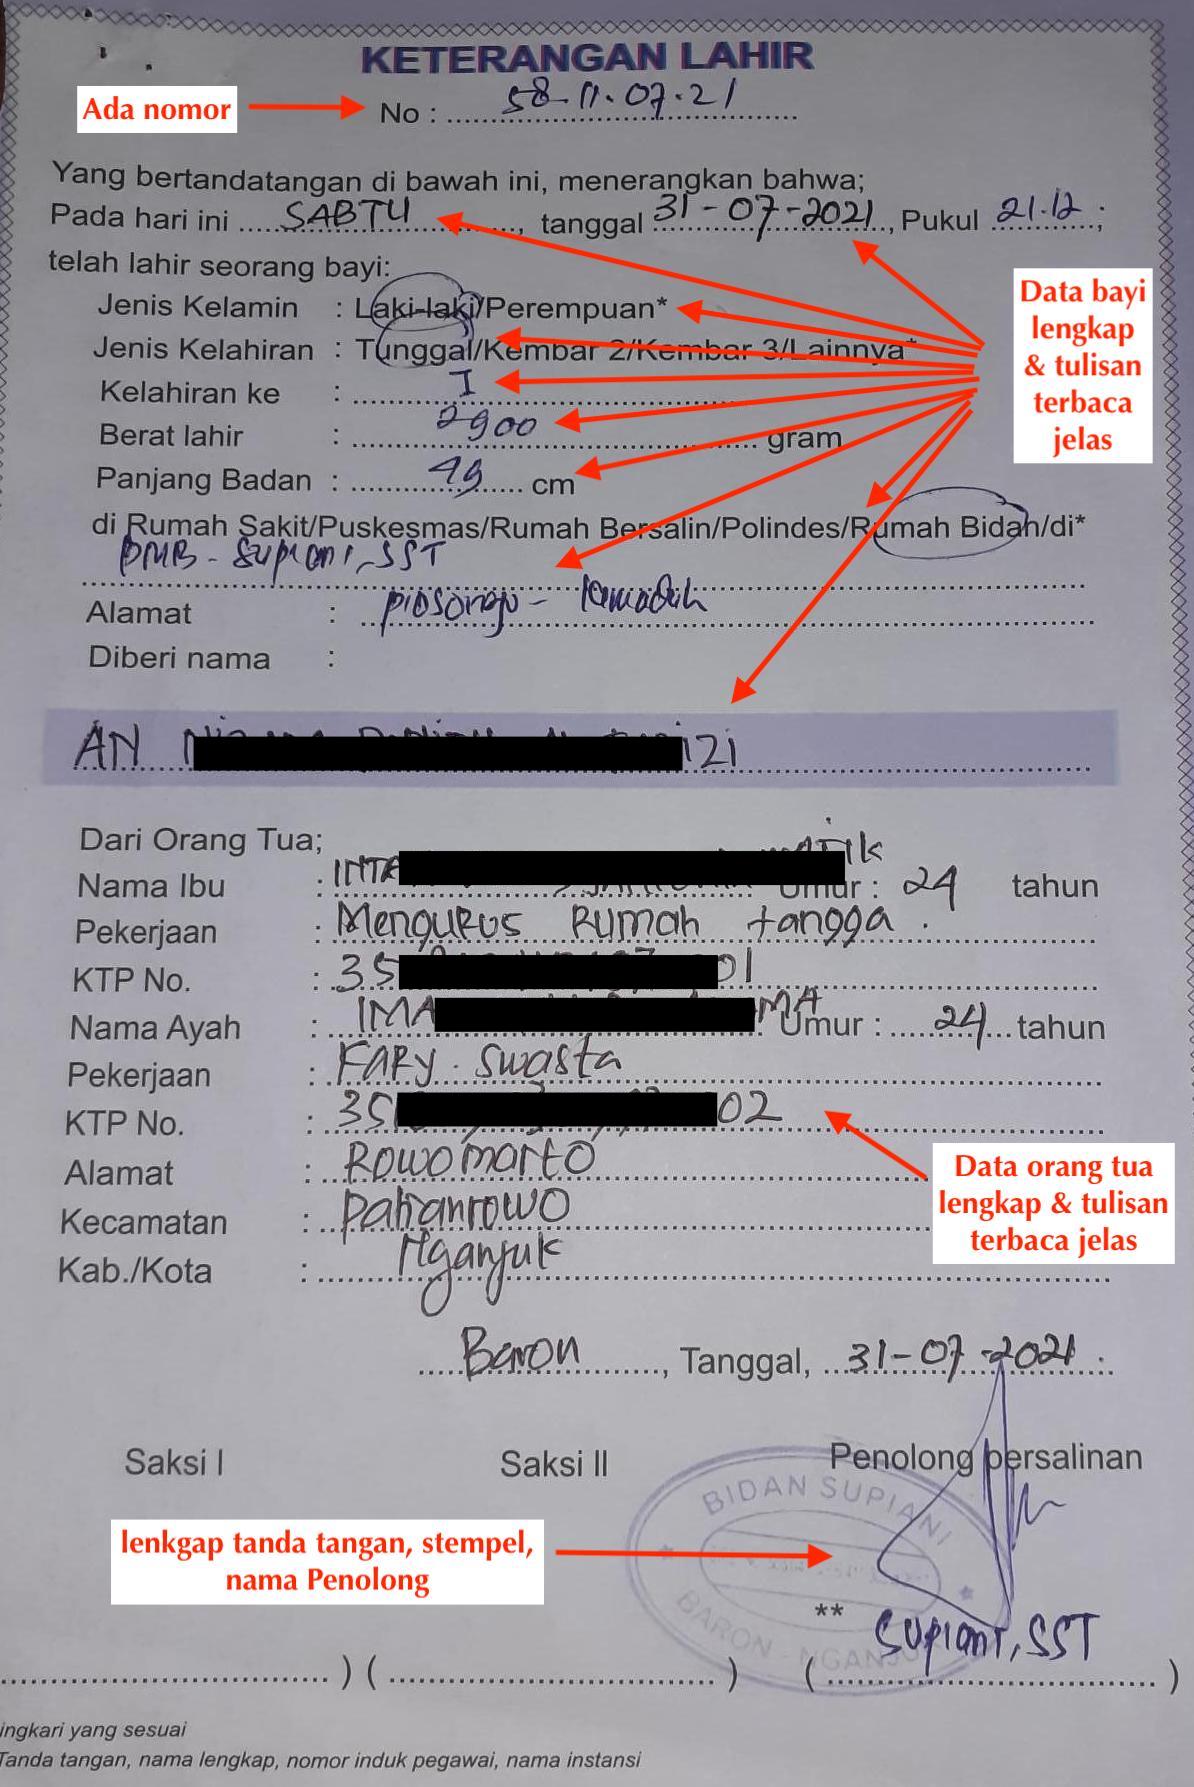 KETERANGAN LAHIR
Ada nomor
No : 58.11.07.21
Yang bertandatangan di bawah ini, menerangkan bahwa;
Pada hari ini SABTU, tanggal 31-07-2021, Pukul 21.12;
telah lahir seorang bayi:
Jenis Kelamin : Laki-laki/Perempuan*
Jenis Kelahiran : Tunggal/Kembar 2/Kembar 3/Lainnya*
Kelahiran ke : I
Berat lahir : 2900 gram
Panjang Badan : 49 cm
Data bayi
lengkap
& tulisan
terbaca
jelas
di Rumah Sakit/Puskesmas/Rumah Bersalin/Polindes/Rumah Bidan/di*
PMB - Supiani, SST
Alamat :
Diberi nama :
AN N izi
Dari Orang Tua;
Nama Ibu : INTA Umur : 24 tahun
Pekerjaan : Mengurus Rumah tangga.
KTP No. : 35 01
Nama Ayah : IMA MA Umur : 24 tahun
Pekerjaan : KARY. Swasta
KTP No. : 35 02
Alamat : Rowomarto
Kecamatan : Patianrowo
Kab./Kota : Nganjuk
Data orang tua
lengkap & tulisan
terbaca jelas
Baron, Tanggal, 31-07-2021.
Saksi I Saksi II Penolong persalinan
BIDAN SUPIANI
BARON - NGANJU
lenkgap tanda tangan, stempel,
nama Penolong
**
Supiani, SST
) ( ) ( )
ingkari yang sesuai
Tanda tangan, nama lengkap, nomor induk pegawai, nama instansi